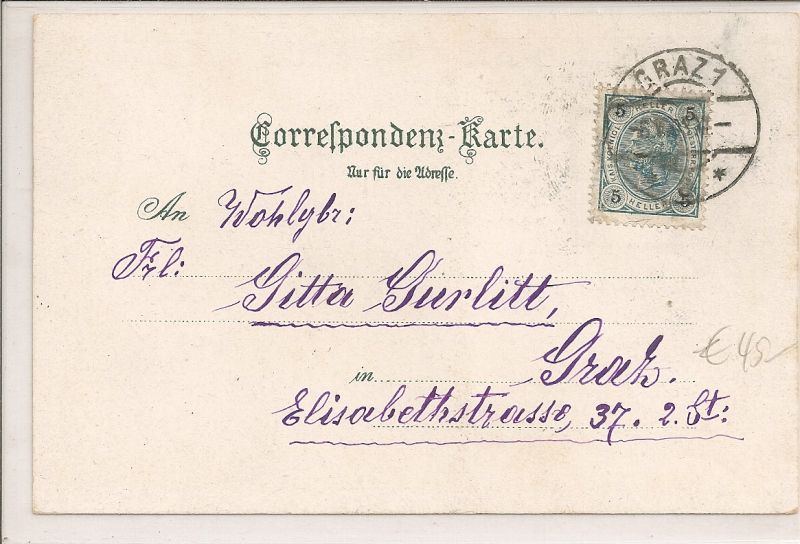 GRAZ 1
5 HELLER 5
5 HELLER 5
Correſpondenz-Karte.
Nur für die Adreſſe.
An Wohlgbr:
Frl:
Gitta Gurlitt,
in Graz.
Elisabethstrasse, 37. 2. St:
€ 45